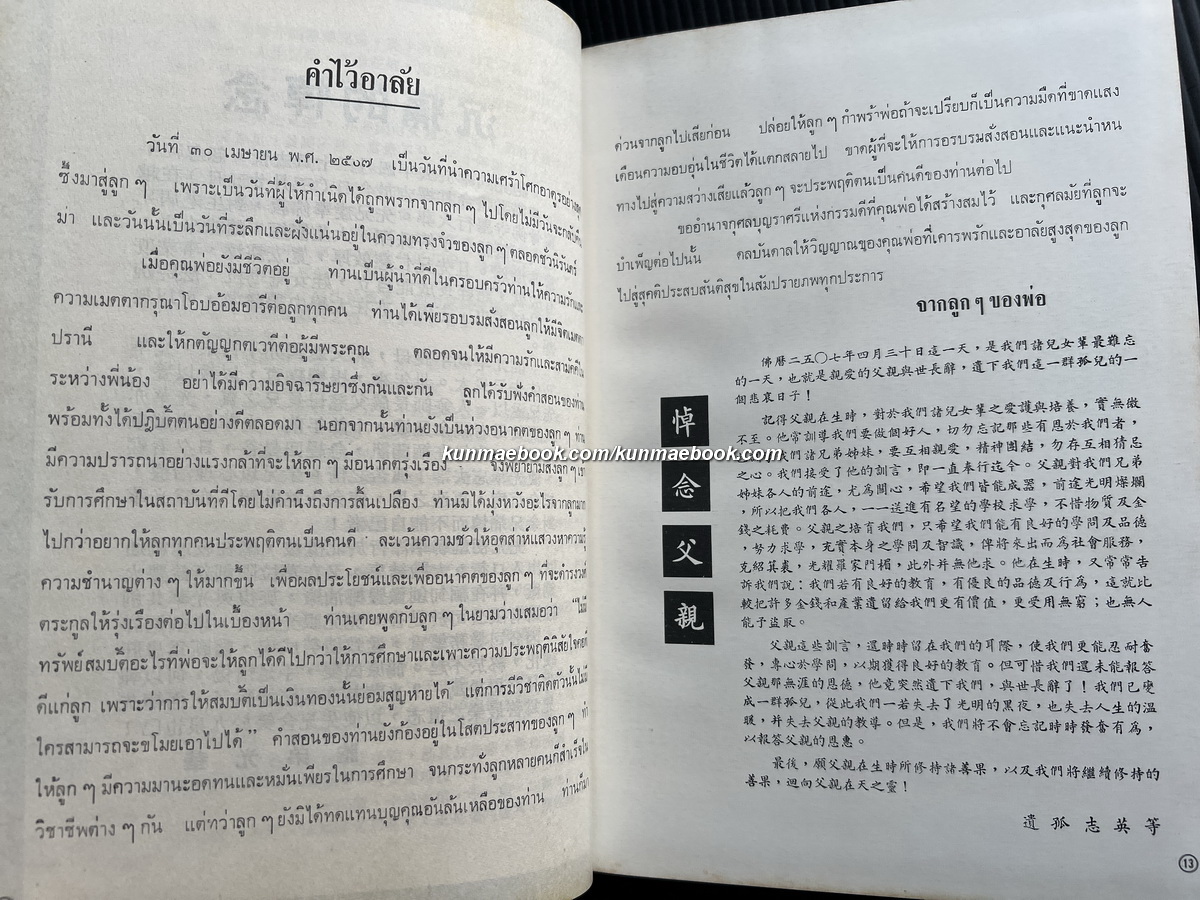 คำไว้อาลัย
วันที่ ๓๐ เมษายน พ.ศ. ๒๕๐๗ เป็นวันที่นำความเศร้าโศกอาดูรอย่าง
ซึ้งมาสู่ลูก ๆ เพราะเป็นวันที่ผู้ให้กำเนิดได้ถูกพรากจากลูก ๆ ไปโดยไม่มีวันจะกลับ
ม่า และวันนั้นเป็นวันที่ระลึกและฝังแน่นอยู่ในความทรงจำของลูก ๆ ตลอดชั่วนิรันดร์
เมื่อคุณพ่อยังมีชีวิตอยู่ ท่านเป็นผู้นำที่ดีในครอบครัวท่านให้ความรักและ
ความเมตตากรุณาโอบอ้อมอารีต่อลูกทุกคน ท่านได้เพียรอบรมสั่งสอนลูกให้มีจิตเมตตา
ปรานี และให้กตัญญูกตเวทีต่อผู้มีพระคุณ ตลอดจนให้มีความรักและสามัคคี
ระหว่างพี่น้อง อย่าได้มีความอิจฉาริษยาซึ่งกันและกัน ลูกได้รับฟังคำสอนของท่าน
พร้อมทั้งได้ปฏิบัติตนอย่างดีตลอดมา นอกจากนั้นท่านยังเป็นห่วงอนาคตของลูก ๆ ท่าน
มีความปรารถนาอย่างแรงกล้าที่จะให้ลูก ๆ มีอนาคตรุ่งเรือง จึงพยายามส่งลูก ๆ
รับการศึกษาในสถาบันที่ดีโดยไม่คำนึงถึงการสิ้นเปลือง ท่านมิได้มุ่งหวังอะไรจากลูกมาก
ไปกว่าอยากให้ลูกทุกคนประพฤติตนเป็นคนดี ละเว้นความชั่วให้อุตส่าห์แสวงหาความรู้
ความชำนาญต่าง ๆ ให้มากขึ้น เพื่อผลประโยชน์และเพื่ออนาคตของลูก ๆ ที่จะดำรงวงศ์
ตระกูลให้รุ่งเรืองต่อไปในเบื้องหน้า ท่านเคยพูดกับลูก ๆ ในยามว่างเสมอว่า “ไม่มี
ทรัพย์สมบัติอะไรที่พ่อจะให้ลูกได้ดีไปกว่าให้การศึกษาและเพาะความประพฤตินิสัยใจคอที่
ดีแก่ลูก เพราะว่าการให้สมบัติเป็นเงินทองนั้นย่อมสูญหายได้ แต่การมีวิชาติดตัวนั้นไม่มี
ใครสามารถจะขโมยเอาไปได้” คำสอนของท่านยังก้องอยู่ในโสตประสาทของลูก ๆ ทำ
ให้ลูก ๆ มีความมานะอดทนและหมั่นเพียรในการศึกษา จนกระทั่งลูกหลายคนก็สำเร็จใน
วิชาชีพต่าง ๆ กัน แต่ทว่าลูก ๆ ยังมิได้ทดแทนบุญคุณอันล้นเหลือของท่าน ท่านก็มา
ด่วนจากลูกไปเสียก่อน ปล่อยให้ลูก ๆ กำพร้าพ่อถ้าจะเปรียบก็เป็นความมืดที่ขาดแสง
เดือนความอบอุ่นในชีวิตได้แตกสลายไป ขาดผู้ที่จะให้การอรบรมสั่งสอนและแนะนำหน
ทางไปสู่ความสว่างเสียแล้วลูก ๆ จะประพฤติตนเป็นคันดีของท่านต่อไป
ขออำนาจกุศลบุญราศรีแห่งกรรมดีที่คุณพ่อได้สร้างสมไว้ และกุศลมัยที่ลูกจะ
บำเพ็ญต่อไปนั้น ดลบันดาลให้วิญญาณของคุณพ่อที่เคารพรักและอาลัยสูงสุดของลูก
ไปสู่สุคติประสบสันติสุขในสัมปรายภพทุกประการ
จากลูก ๆ ของพ่อ
悼念父親
佛曆二五〇七年四月三十日這一天，是我們諸兒女輩最難忘
的一天，也就是親愛的父親與世長辭，遺下我們這一群孤兒的一
個悲哀日子！
記得父親在生時，對於我們諸兒女輩之愛護與培養，實無微
不至。他常訓導我們要做個好人，切勿忘記那些有恩於我們者，
我們諸兄弟姊妹，要互相親愛，精神團結，勿存互相猜忌
之心。我們接受了他的訓言，即一直奉行迄今。父親對我們兄弟
姊妹各人的前途，尤為關心，希望我們皆能成器，前途光明燦爛
，所以把我們各人，一一送進有名望的學校求學，不惜物質及金
錢之耗費。父親之培育我們，只希望我們能有良好的學問及品德
，努力求學，充實本身之學問及智識，俾將來出而為社會服務，
克紹箕裘，光耀羅家門楣，此外并無他求。他在生時，又常常告
訴我們說：我們若有良好的教育，有優良的品德及行為，這就比
較把許多金錢和產業遺留給我們更有價值，更受用無窮；也無人
能予盜取。
父親這些訓言，還時時留在我們的耳際，使我們更能忍耐奮
發，專心於學問，以期獲得良好的教育。但可惜我們還未能報答
父親那無涯的恩德，他竟突然遺下我們，與世長辭了！我們已變
成一群孤兒，從此我們一若失去了光明的黑夜，也失去人生的溫
暖，并失去父親的教導。但是，我們將不會忘記時時發奮有為，
以報答父親的恩惠。
最後，願父親在生時所修持諸善果，以及我們將繼續修持的
善果，迴向父親在天之靈！
遺孤志英等
13
kunmaebook.com/kunmaebook.com